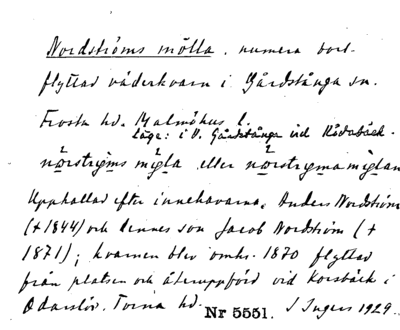 Nordströms mölla. numera bort-
flyttad väderkvarn i Gårdstånga sn.
Frosta hd. Malmöhus l.
Läge: i V. Gårdstånga vid Rödabäck.
eller
Uppkallad efter innehavarna, Anders Nordström
(†1844) och dennes son Jacob Nordström (†
1871); kvarnen blev omkr. 1870 flyttad
från platsen och återuppförd vid Korsbäck i
Odarslöv. Torna hd. Nr 5551. S Ingers 1929.